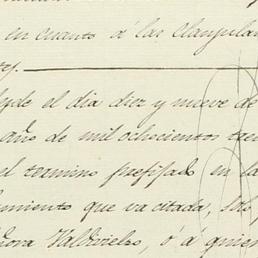 en cuanto á las Clausulas
desde el dia diez y nueve de
año de mil ochocientos
el termino prefijado en la
miento que va citada, solo
ñora Valdivielso, ó á quien